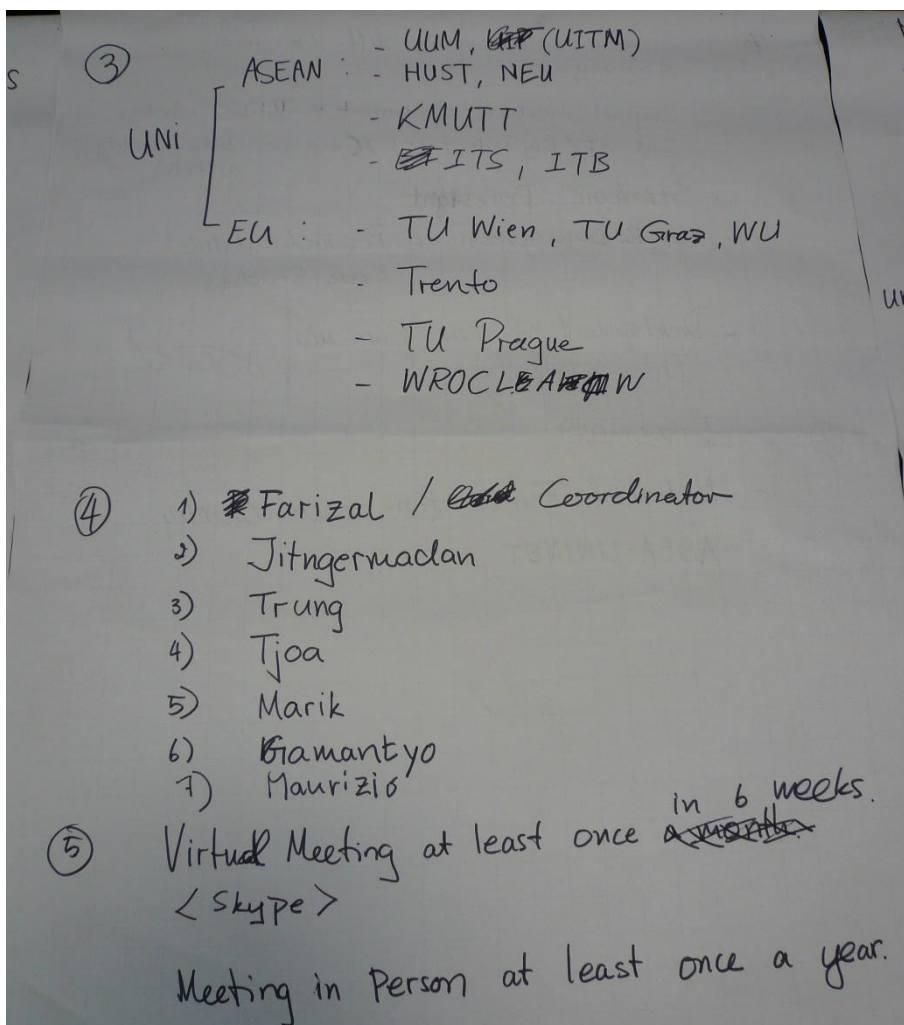 ③ - UUM, (UITM)
ASEAN : - HUST, NEU
UNi - KMUTT
- ITS, ITB
EU : - TU Wien, TU Graz, WU
- Trento
- TU Prague
- WROCLAW
④ 1) Farizal / Coordinator
2) Jitngermadan
3) Trung
4) Tjoa
5) Marik
6) Gamantyo
7) Maurizio
in 6 weeks.
⑤ Virtual Meeting at least once a month.
<Skype>
Meeting in Person at least once a year.